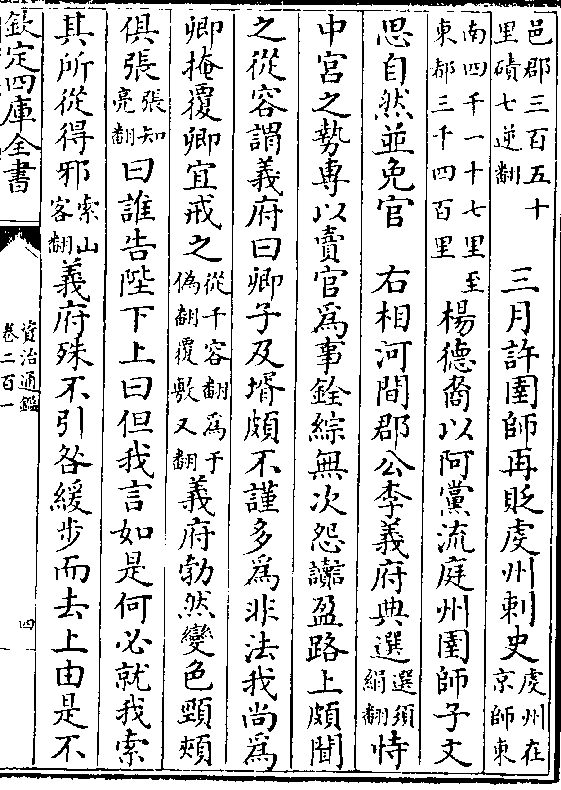 邑郡三百五十里磧七逆翻 三月許圉師再貶虔州刺史虔州在京師東
南四千一十七里至東都三千四百里 楊德裔以阿黨流庭州圉師子文
思自然並免官 右相河間郡公李義府典選選須絹翻恃
中宮之勢專以賣官爲事銓綜無次怨讟盈路上頗聞
之從容謂義府曰卿子及壻頗不謹多爲非法我尚爲
卿掩覆卿宜戒之從千容翻爲于偽翻覆敷又翻義府勃然變色頸頰
俱張張知亮翻曰誰告陛下上曰但我言如是何必就我索
其所從得邪索山客翻義府殊不引咎緩步而去上由是不
欽定四庫全書
資治通鑑
卷二百一
四